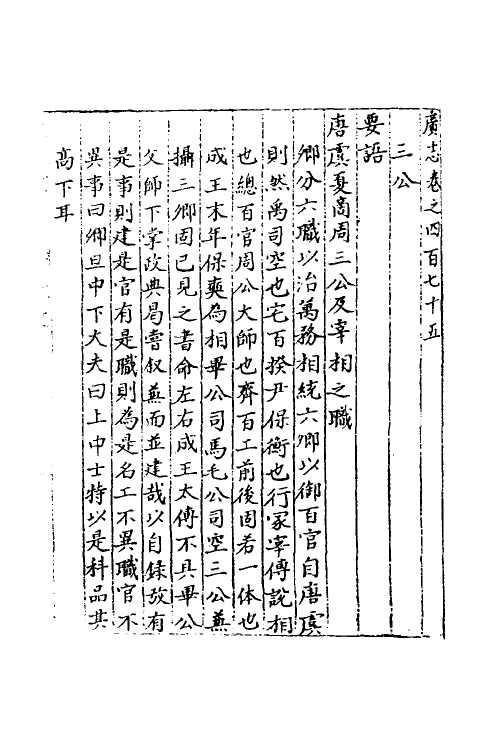 廣志卷之四百七十五
三公
要語
唐虞夏商周三公及宰相之職
卿分六職以治萬務相統六卿以御百官自唐虞
則然禹司空也宅百揆尹保衡也行冢宰傅說相
也總百官周公大師也齊百工前後固若一体也
成王末年保奭為相畢公司馬毛公司空三公兼
攝三卿固已見之書命左右成王太傅不具畢公
父師下掌政典曷嘗叙兼而並建哉以自錄攷有
是事則建是官有是職則為是名工不異職官不
異事曰卿旦中下大夫曰上中士特以是科品其
高下耳